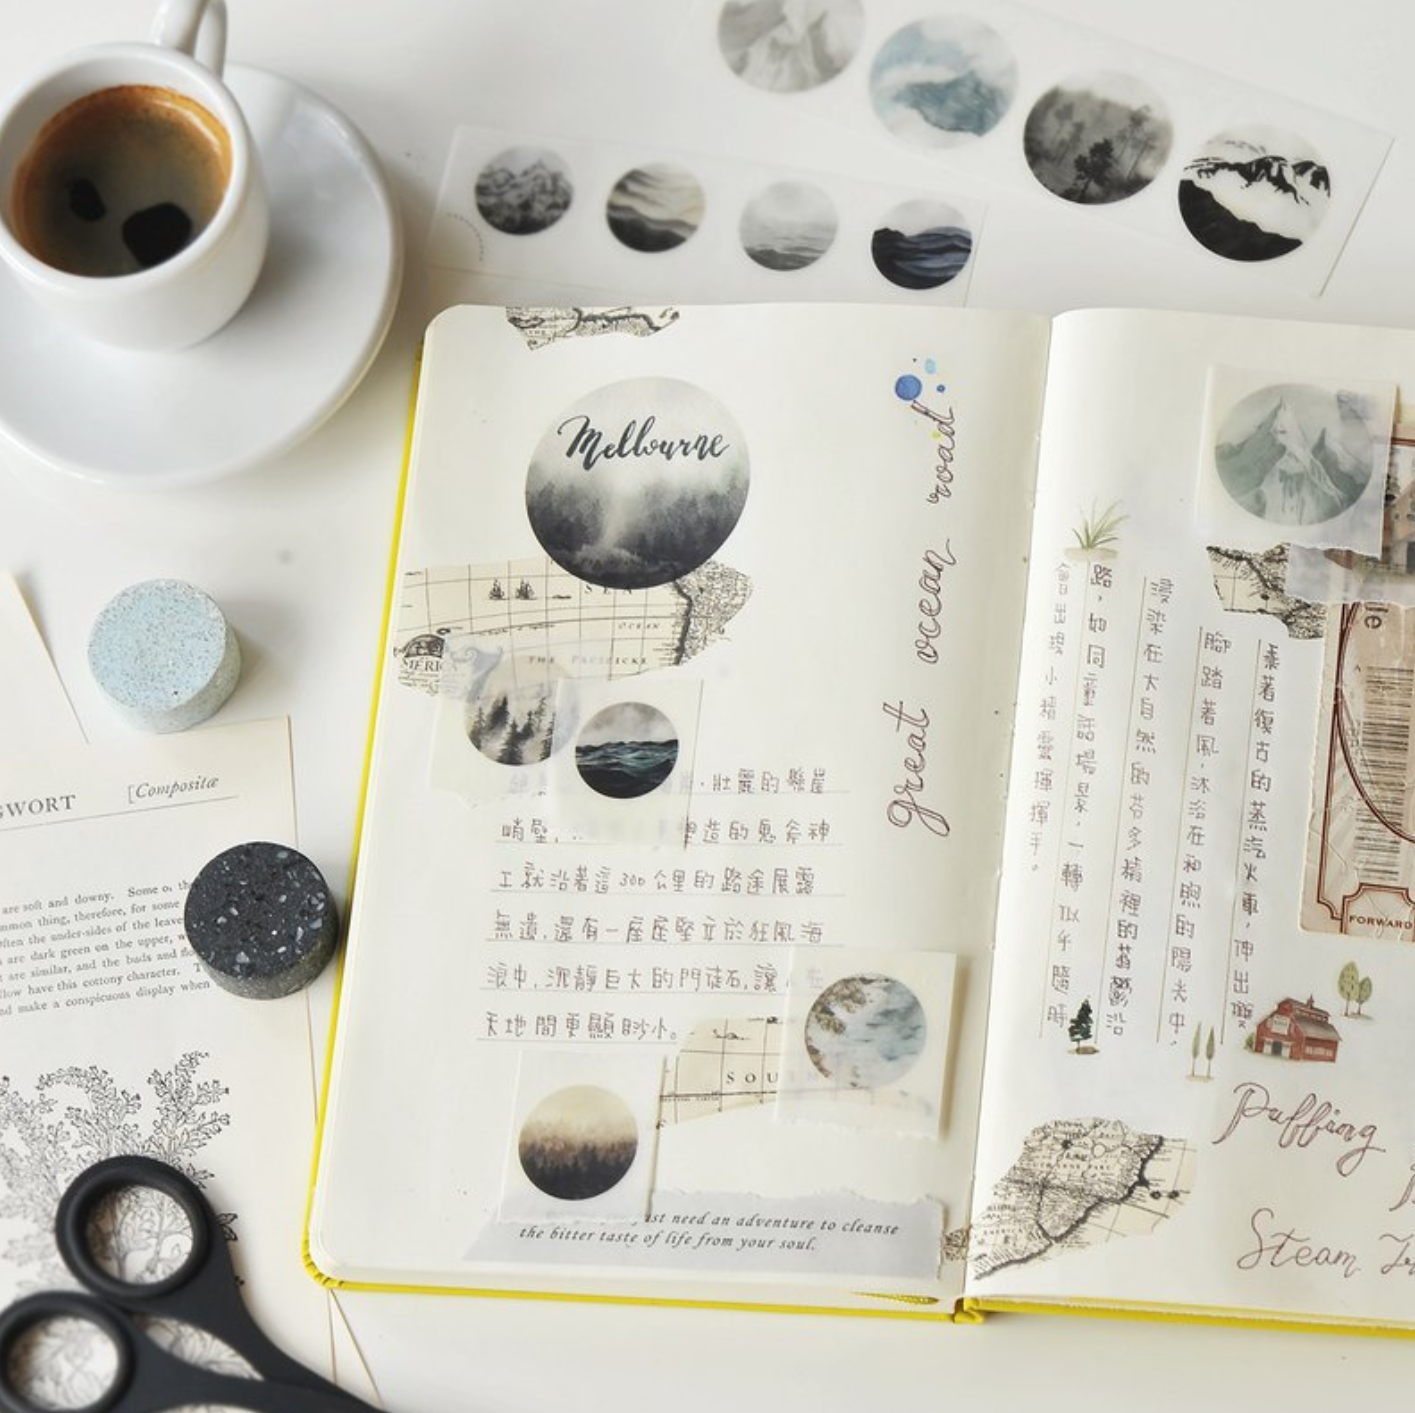 Melbourne
great ocean road
SEA
OCEAN
THE PACIFICKE
壯麗的懸崖
峭壁,
造的鬼斧神
工就沿著這300公里的路途展露
無遺,還有一座座堅立於狂風海
浪中,沉靜巨大的門徒石,讓
天地間更顯眇小。
SOU
just need an adventure to cleanse
the bitter taste of life from your soul.
乘著復古的蒸汽火車,伸出
腳踏著風,沐浴在和煦的陽光中,
在大自然的芬多精裡的蓊鬱沿
路,如同童話場景,一轉似乎隨時
會出現小精靈揮揮手。
FORWARD
Puffing
Steam
GWORT
[Compositæ
are soft and downy. Some
mmon thing, therefore, for some
Often the under-sides of the leave
are dark green on the upper,
are similar, and the buds and
llow have this cottony character.
nd make a conspicuous display when